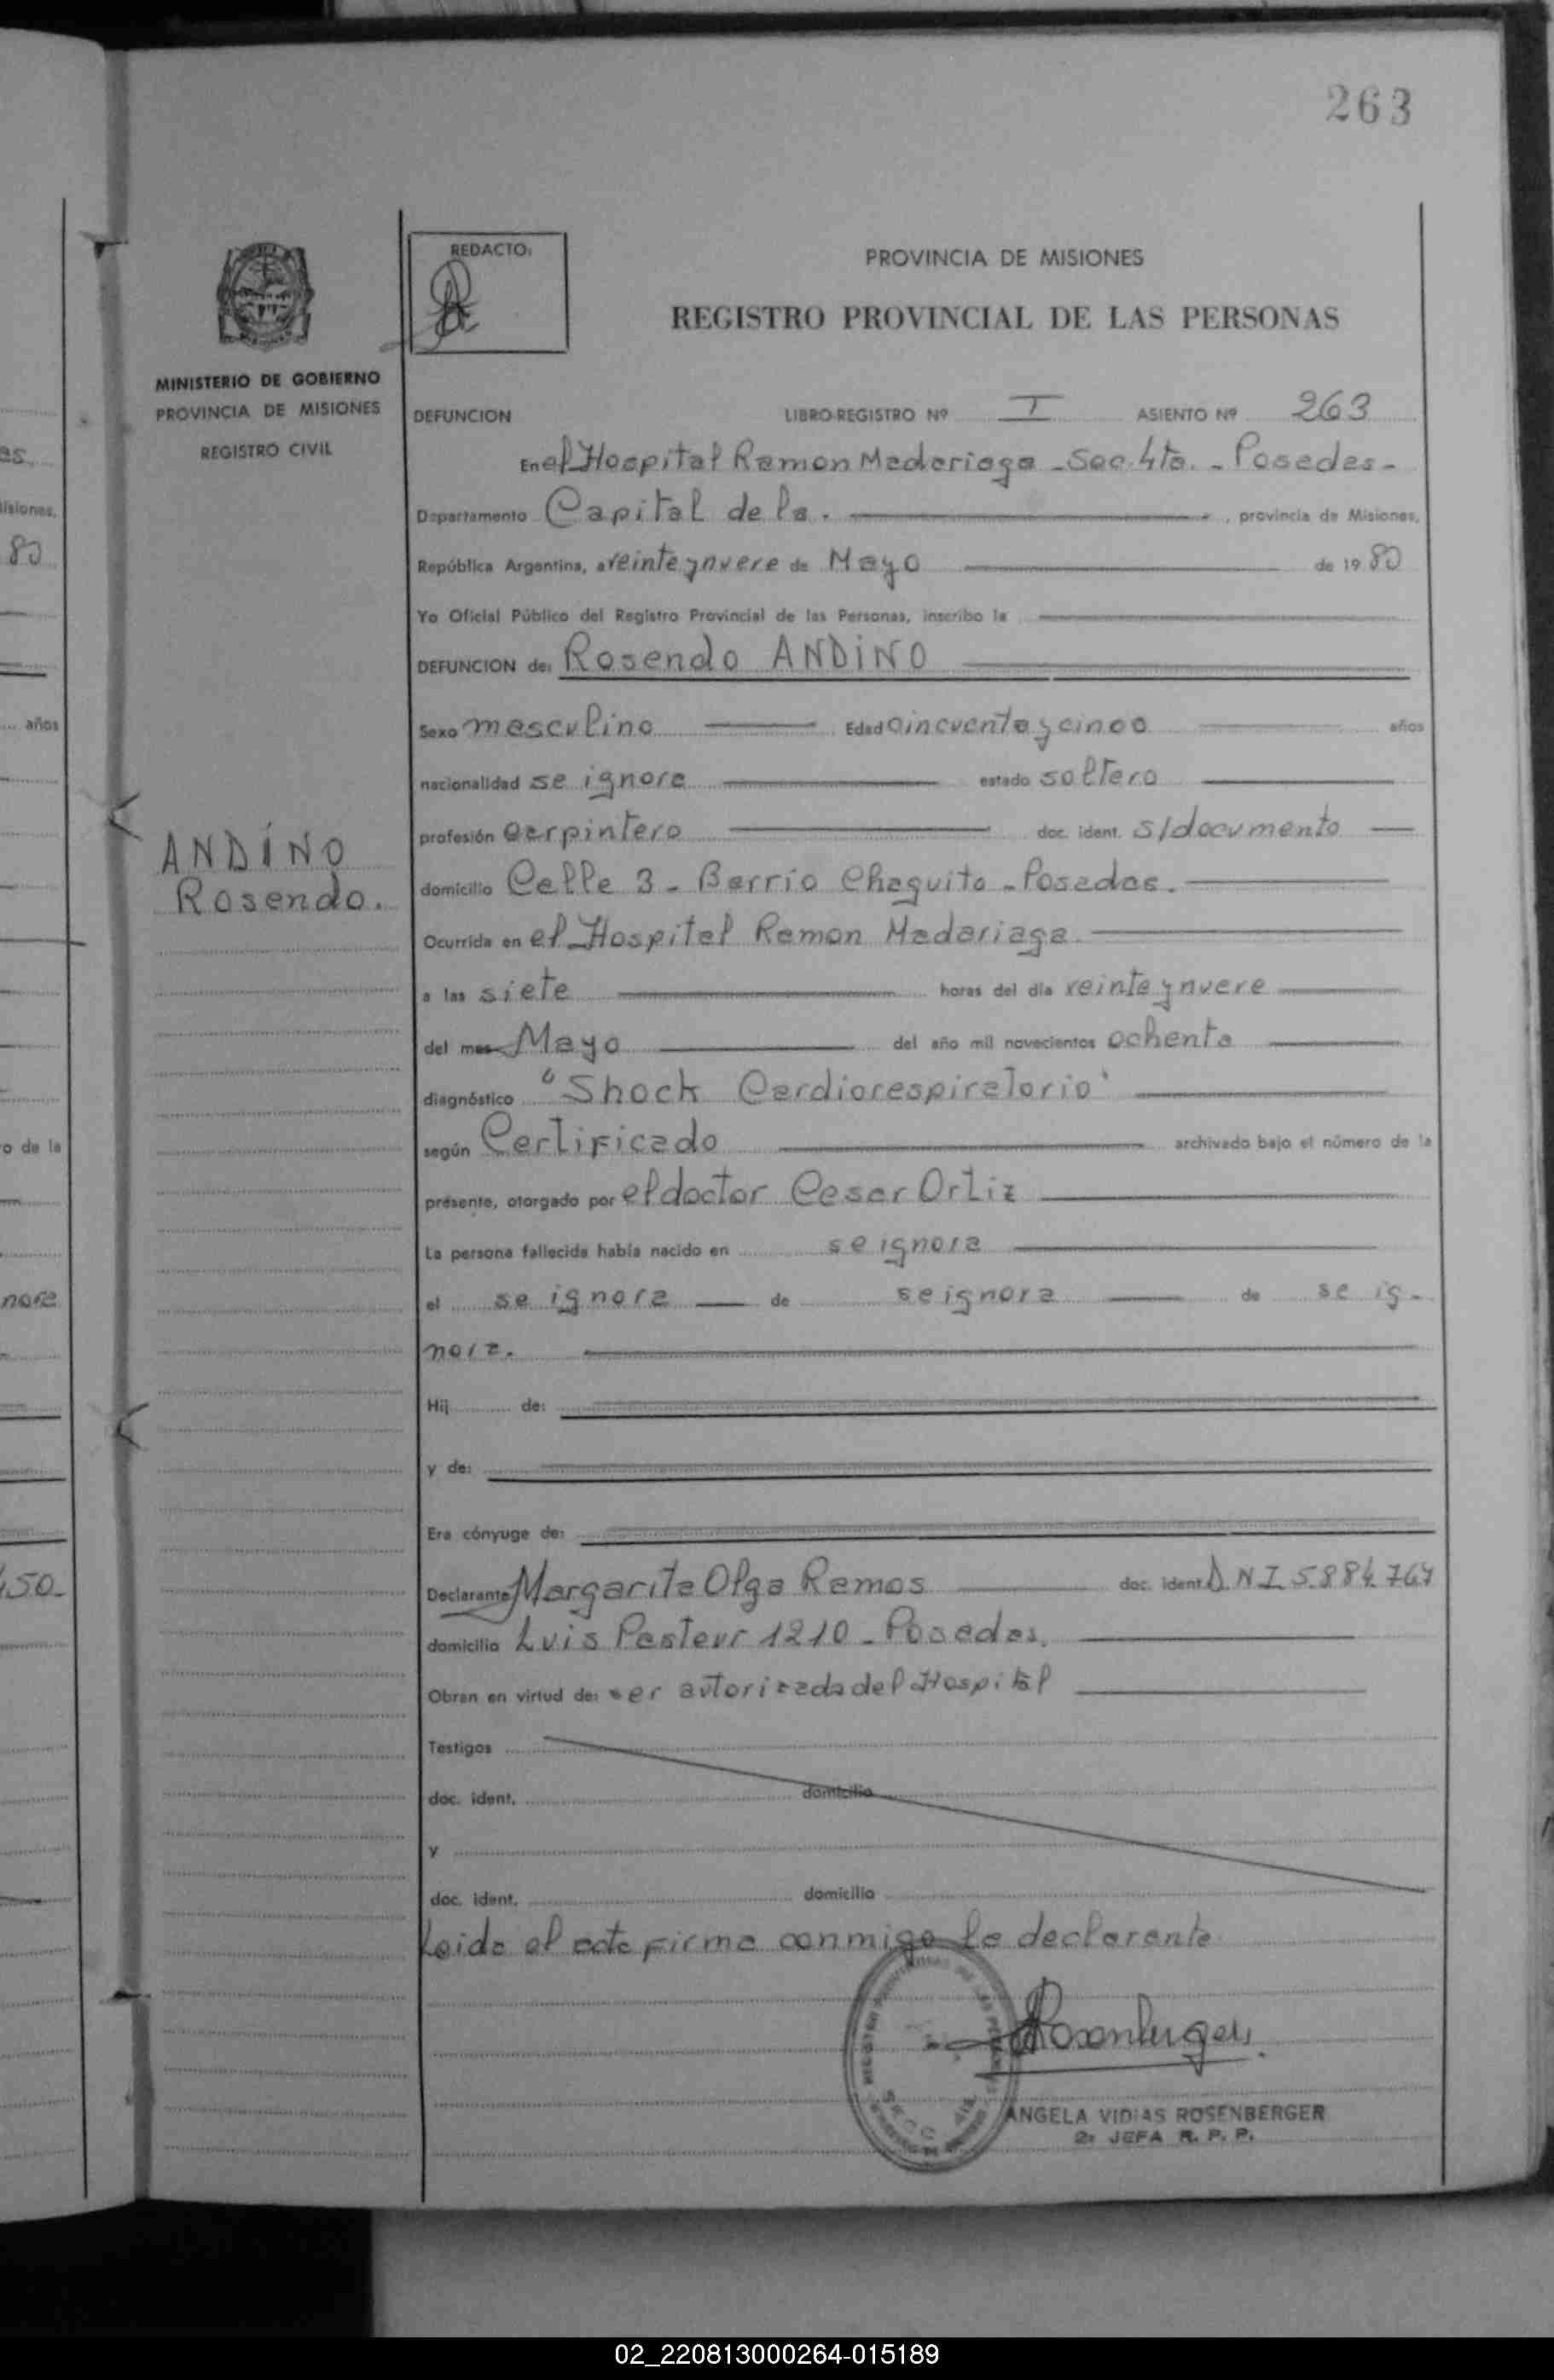 263
REDACTO:
PROVINCIA DE MISIONES
REGISTRO PROVINCIAL DE LAS PERSONAS
MINISTERIO DE GOBIERNO
PROVINCIA DE MISIONES
REGISTRO CIVIL
DEFUNCION LIBRO-REGISTRO Nº I ASIENTO Nº 263
En el Hospital Ramon Madariaga - Sec. 4ta. - Posadas -
Departamento Capital de la. , provincia de Misiones,
República Argentina, a veinte y nueve de Mayo de 19 80
Yo Oficial Público del Registro Provincial de las Personas, inscribo la
DEFUNCION de: Rosendo ANDINO
Sexo masculino Edad cincuenta y cinco años
nacionalidad se ignora estado soltero
profesión carpintero doc. ident. s/documento
ANDINO
Rosendo.
domicilio Calle 3 - Barrio Chaquito - Posadas.
Ocurrida en el Hospital Ramon Madariaga.
a las siete horas del día veinte y nueve
del mes Mayo del año mil novecientos ochenta
diagnóstico "Shock Cardiorespiratorio"
según Certificado archivado bajo el número de la
presente, otorgado por el doctor Cesar Ortiz
La persona fallecida había nacido en se ignora
el se ignora de se ignora de se ig-
nora.
Hij de:
y de:
Era cónyuge de:
Declarante Margarita Olga Ramos doc. ident. D.N.I 5.884.764
domicilio Luis Pasteur 1210 - Posadas.
Obran en virtud de: ser autorizada del Hospital
Testigos
doc. ident. domicilio
y
doc. ident. domicilio
Leida el acta firma conmigo la declarante
Rosenberger
ANGELA VIDIAS ROSENBERGER
2ª JEFA R. P. P.
isiones,
80
años
o de la
nora
150-
02_220813000264-015189